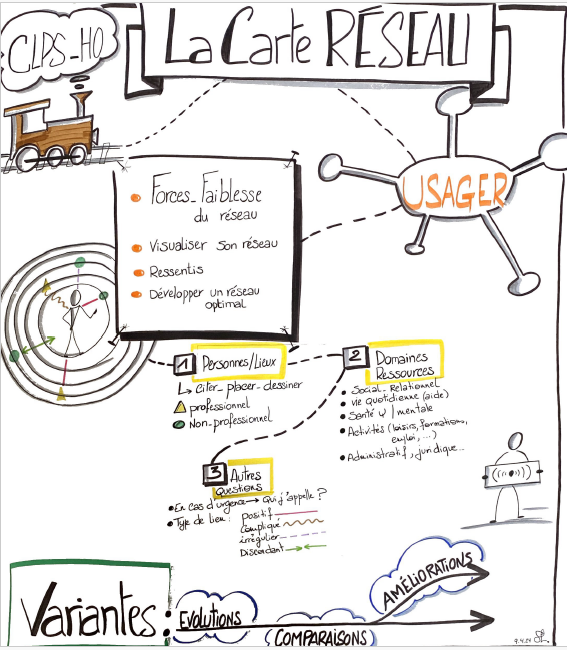 CLPS-HO
La Carte RÉSEAU
USAGER
Forces-Faiblesse
du réseau
Visualiser son réseau
Ressentis
Développer un réseau
optimal
1 Personnes/Lieux
↳ Citer-placer-dessiner
professionnel
Non-professionnel
2 Domaines
Ressources
Social-Relationnel
vie quotidienne (aide)
Santé ψ / mentale
Activités (loisirs, formations,
emploi, ...)
Administratif, juridique...
3 Autres
Questions
En cas d'urgence → Qui j'appelle ?
Type de lien : positif
compliqué
irrégulier
Discordant
Variantes :
EVOLUTIONS
(COMPARAISONS)
AMÉLIORATIONS